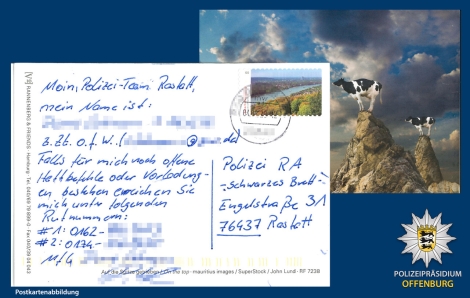 Moin, Polizei-Team Rastatt,
mein Name ist:
z.Zt. o.f.W. (
@
.de)
Falls für mich noch offene
Haftbefehle oder Vorladun-
gen bestehen erreichen Sie
mich unter folgenden
Rufnummern:
#1: 0162-
#2: 0174-
MfG
Polizei RA
-Schwarzes Brett-
Engelstraße 31
76437 Rastatt
mauritius images / SuperStock / John Lund · RF 7238
POLIZEIPRÄSIDIUM
OFFENBURG
Postkartenabbildung